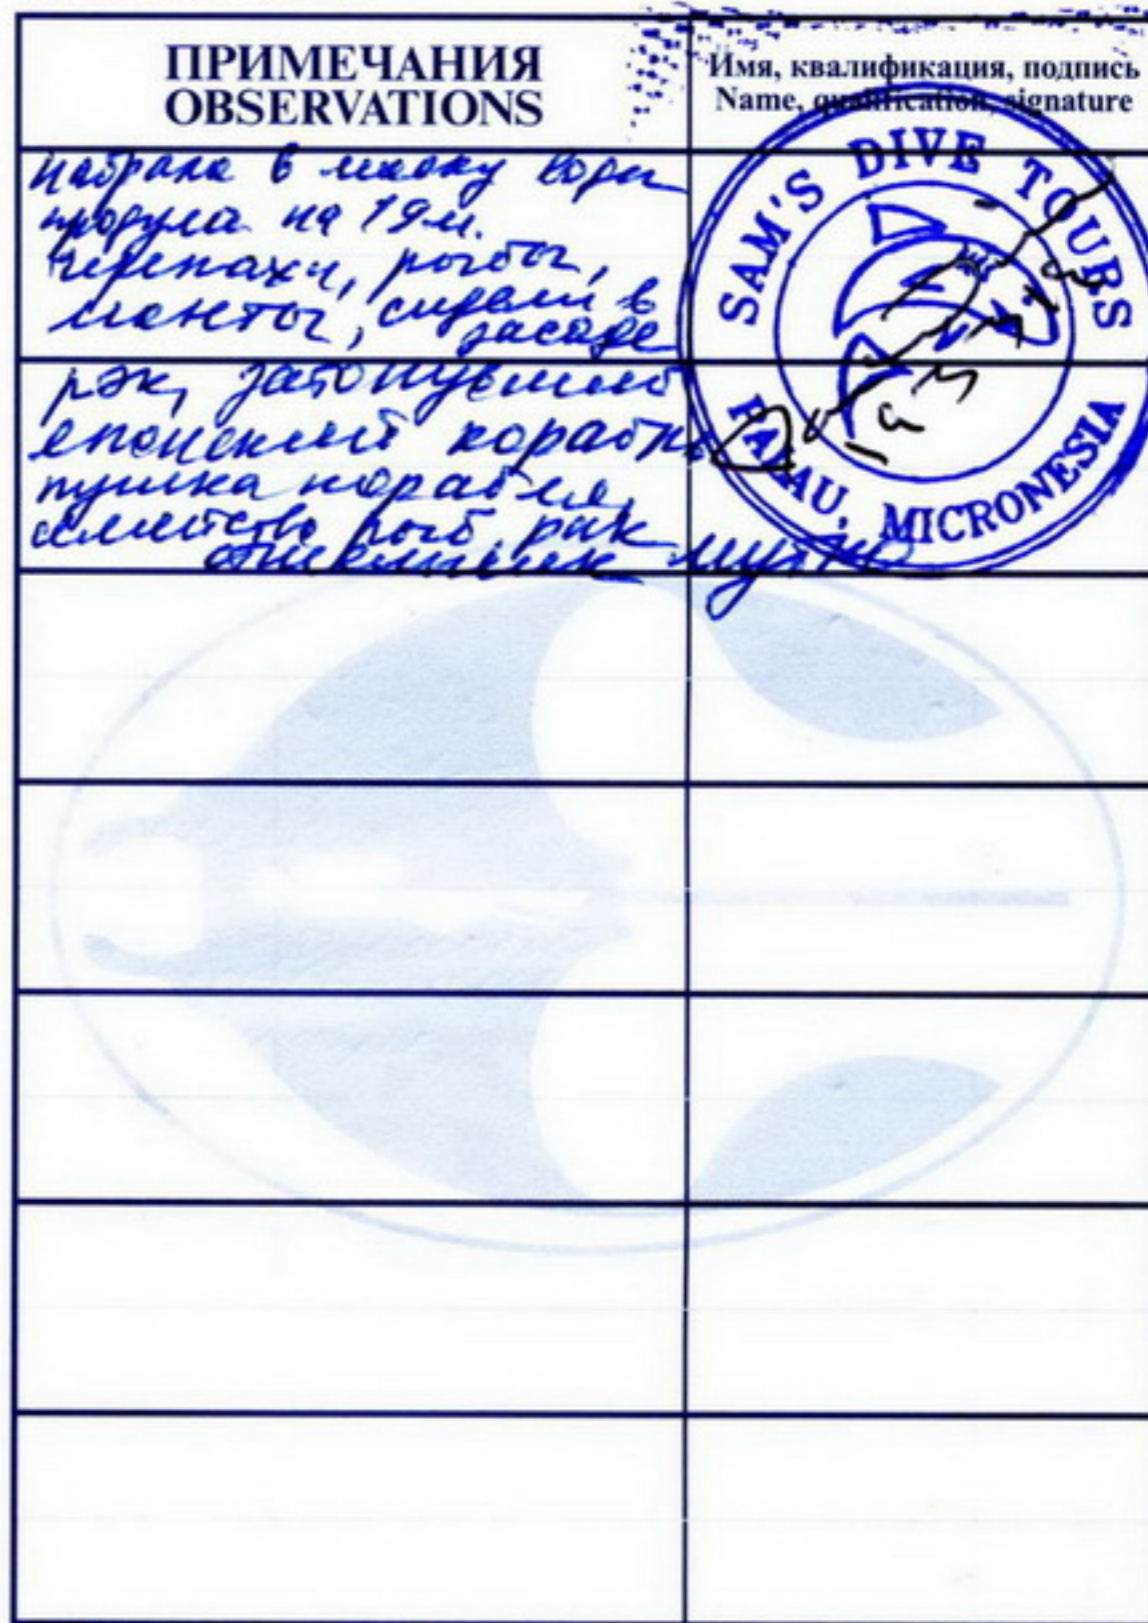 ПРИМЕЧАНИЯ
OBSERVATIONS
Имя, квалификация, подпись
Name, qualification, signature
набрала в маску воды
продула на 19 м.
черепахи, рыбы,
манты, сидели в
засаде
рэк, затонувший
японский корабль
пушка корабля,
семейство рыб, рак
отшельник
SAM'S DIVE TOURS
PALAU, MICRONESIA